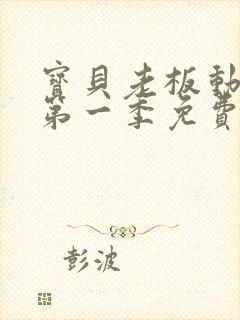 寶貝老板動
第一季免費
彭波